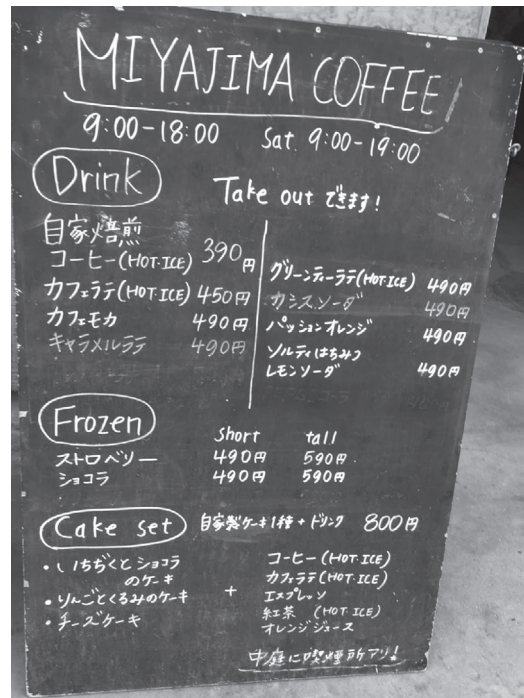 MIYAJIMA COFFEE
9:00-18:00 Sat. 9:00-19:00
Drink
Take out できます!
自家焙煎
コーヒー(HOT・ICE) 390円
カフェラテ(HOT・ICE) 450円
カフェモカ 490円
キャラメルラテ 490円
グリーンティーラテ(HOT・ICE) 490円
カシスソーダ 490円
パッションオレンジ 490円
ソルティはちみつ
レモンソーダ 490円
Frozen
short tall
ストロベリー 490円 590円
ショコラ 490円 590円
Cake set 自家製ケーキ1種+ドリンク 800円
・いちぢくとショコラ
のケーキ
・りんごとくるみのケーキ
・チーズケーキ
+
コーヒー(HOT・ICE)
カフェラテ(HOT・ICE)
エスプレッソ
紅茶 (HOT・ICE)
オレンジジュース
中庭に喫煙所アリ!